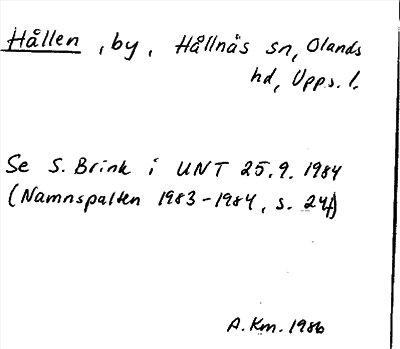 Hållen, by, Hållnäs sn, Olands
hd, Upps. l.
Se S. Brink i UNT 25.9.1984
(Namnspalten 1983-1984, s. 24f)
A.Km. 1986